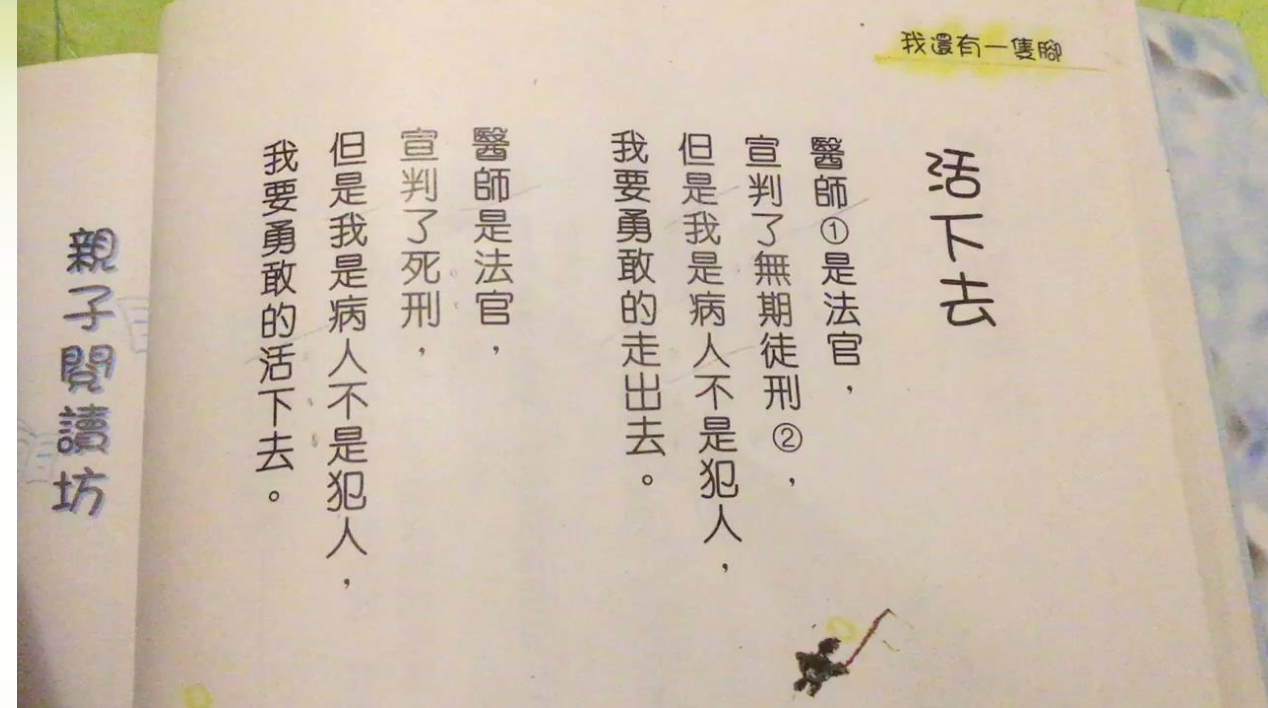 我還有一隻腳
活下去
醫師①是法官，
宣判了無期徒刑②，
但是我是病人不是犯人，
我要勇敢的走出去。
醫師是法官，
宣判了死刑，
但是我是病人不是犯人，
我要勇敢的活下去。
親子閱讀坊